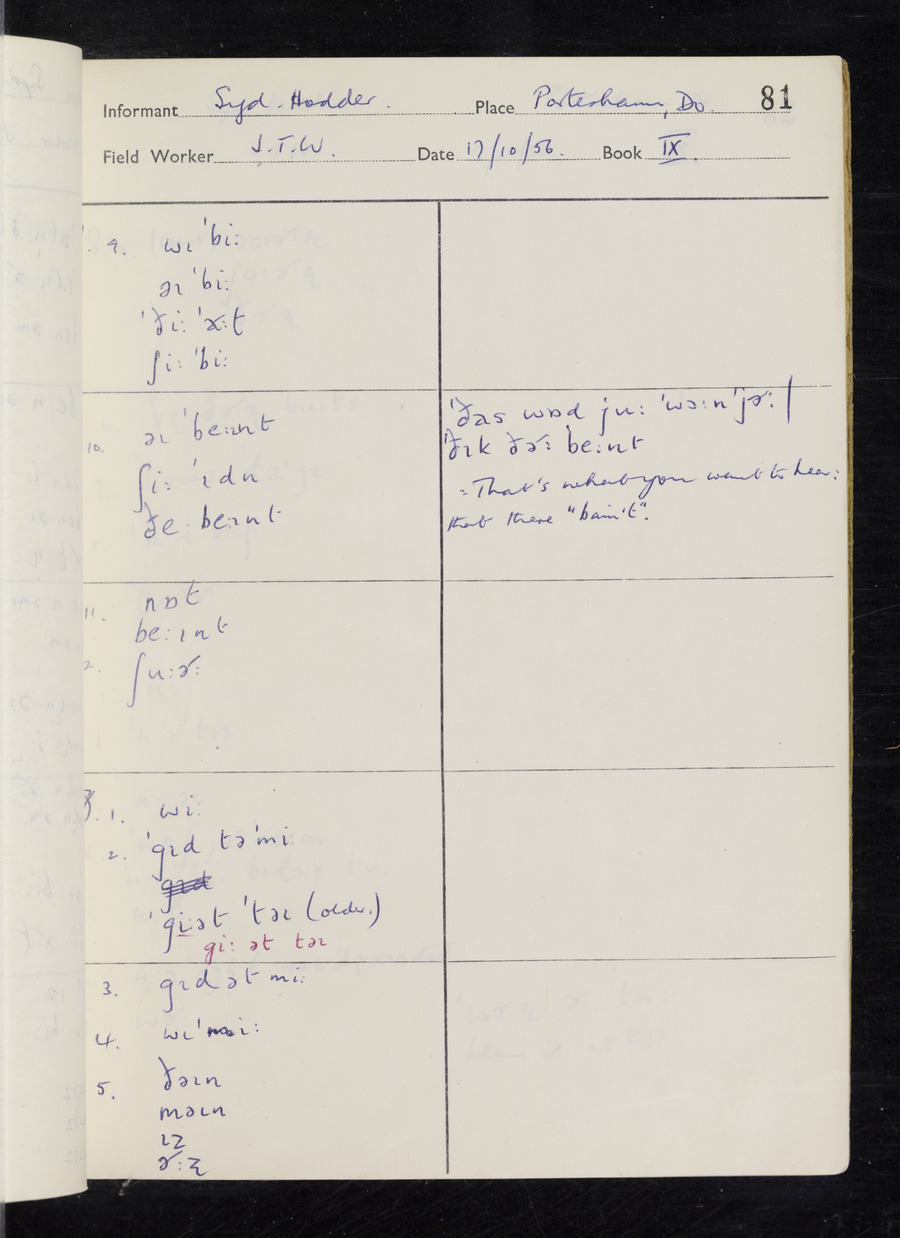 Informant Syd. Hodder. Place Portesham, Do. 81
Field Worker J.T.W. Date 17/10/56. Book IX
9. wɪˈbiː
əɪ ˈbiː
ˈðiː ˈɚːt
ʃiː ˈbiː
10. əɪ ˈbeːɪnt
ʃiː ˈɪdn
ðe beːɪnt
ˈðas wɒd juː ˈwɔːnˈjɚː |
ˈðɪk ðɚː beːɪnt
= That's what you want to hear:
that there "bain't".
11. nɒt
beːɪnt
2. ʃuːɚː
3. 1. wiː
2. ˈgɪd təˈmiː
gɪd
ˈgiːət ˈtəɪ (older.)
giː ət təɪ
3. gɪd ət miː
4. wɪˈmiː
5. ðəɪn
məɪn
ɪz
ɚːʐ